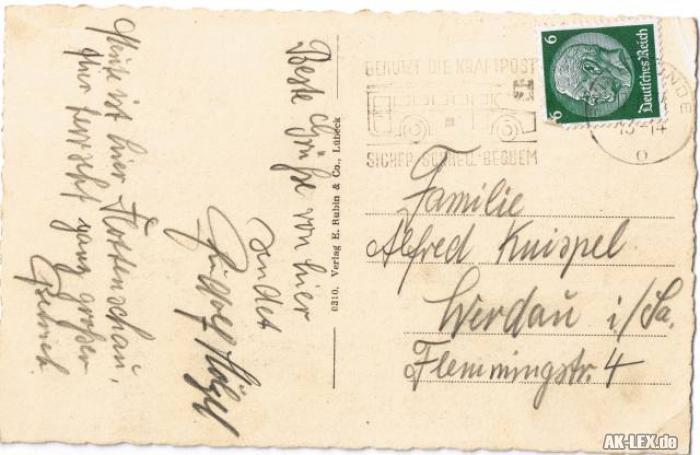 Heute ist hier Flottenschau,
hier herrscht ganz großer
Betrieb.
Beste Grüße von hier
sendet
Rudolf
6310. Verlag E. Rubin & Co., Lübeck
BENUTZT DIE KRAFTPOST
SICHER SCHNELL BEQUEM
6 6
Deutsches Reich
Familie
Alfred Knispel
Werdau i/Sa.
Flemmingstr. 4
AK-LEX.de